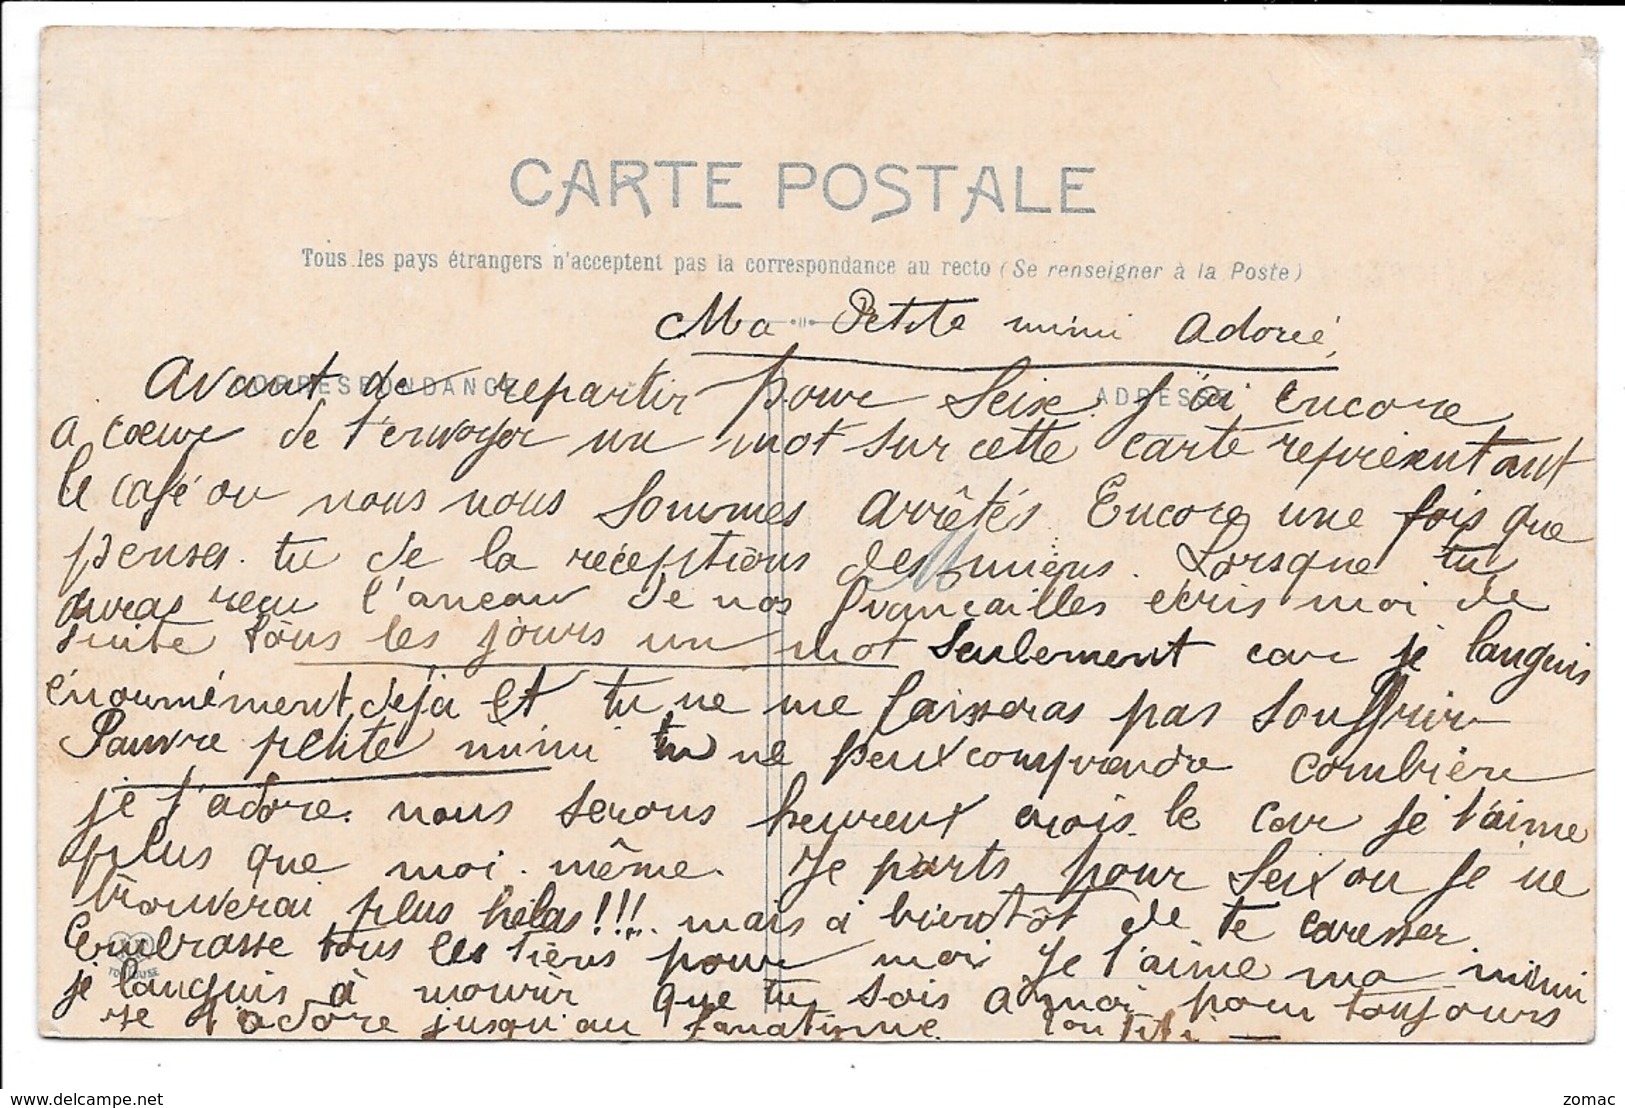 CARTE POSTALE
Tous les pays étrangers n'acceptent pas la correspondance au recto (Se renseigner à la Poste)
Ma Petite mimi Adorée,
CORRESPONDANCE
ADRESSE
Avant de repartir pour Seix j'ai encore
a coeur de t'envoyer un mot sur cette carte représentant
le café ou nous nous sommes arrêtés. Encore une fois que
penses tu de la réceptions des miens. Lorsque tu
auras reçu l'anneau de nos fiançailles ecris moi de
suite tous les jours un mot seulement car je languis
énormément déjà et tu ne me laisseras pas souffrir
Pauvre petite mimi tu ne peux comprendre combien
je t'adore. nous serons heureux crois le car je t'aime
plus que moi même. Je parts pour Seix ou je ne
trouverai plus hélas!!!... mais a bientôt de te caresser
Embrasse tous les tiens pour moi Je t'aime ma mimi
TOULOUSE
je languis à mourir que tu sois a moi pour toujours
je t'adore jusqu'au fanatisme ton titi
delcampe.net
zomac